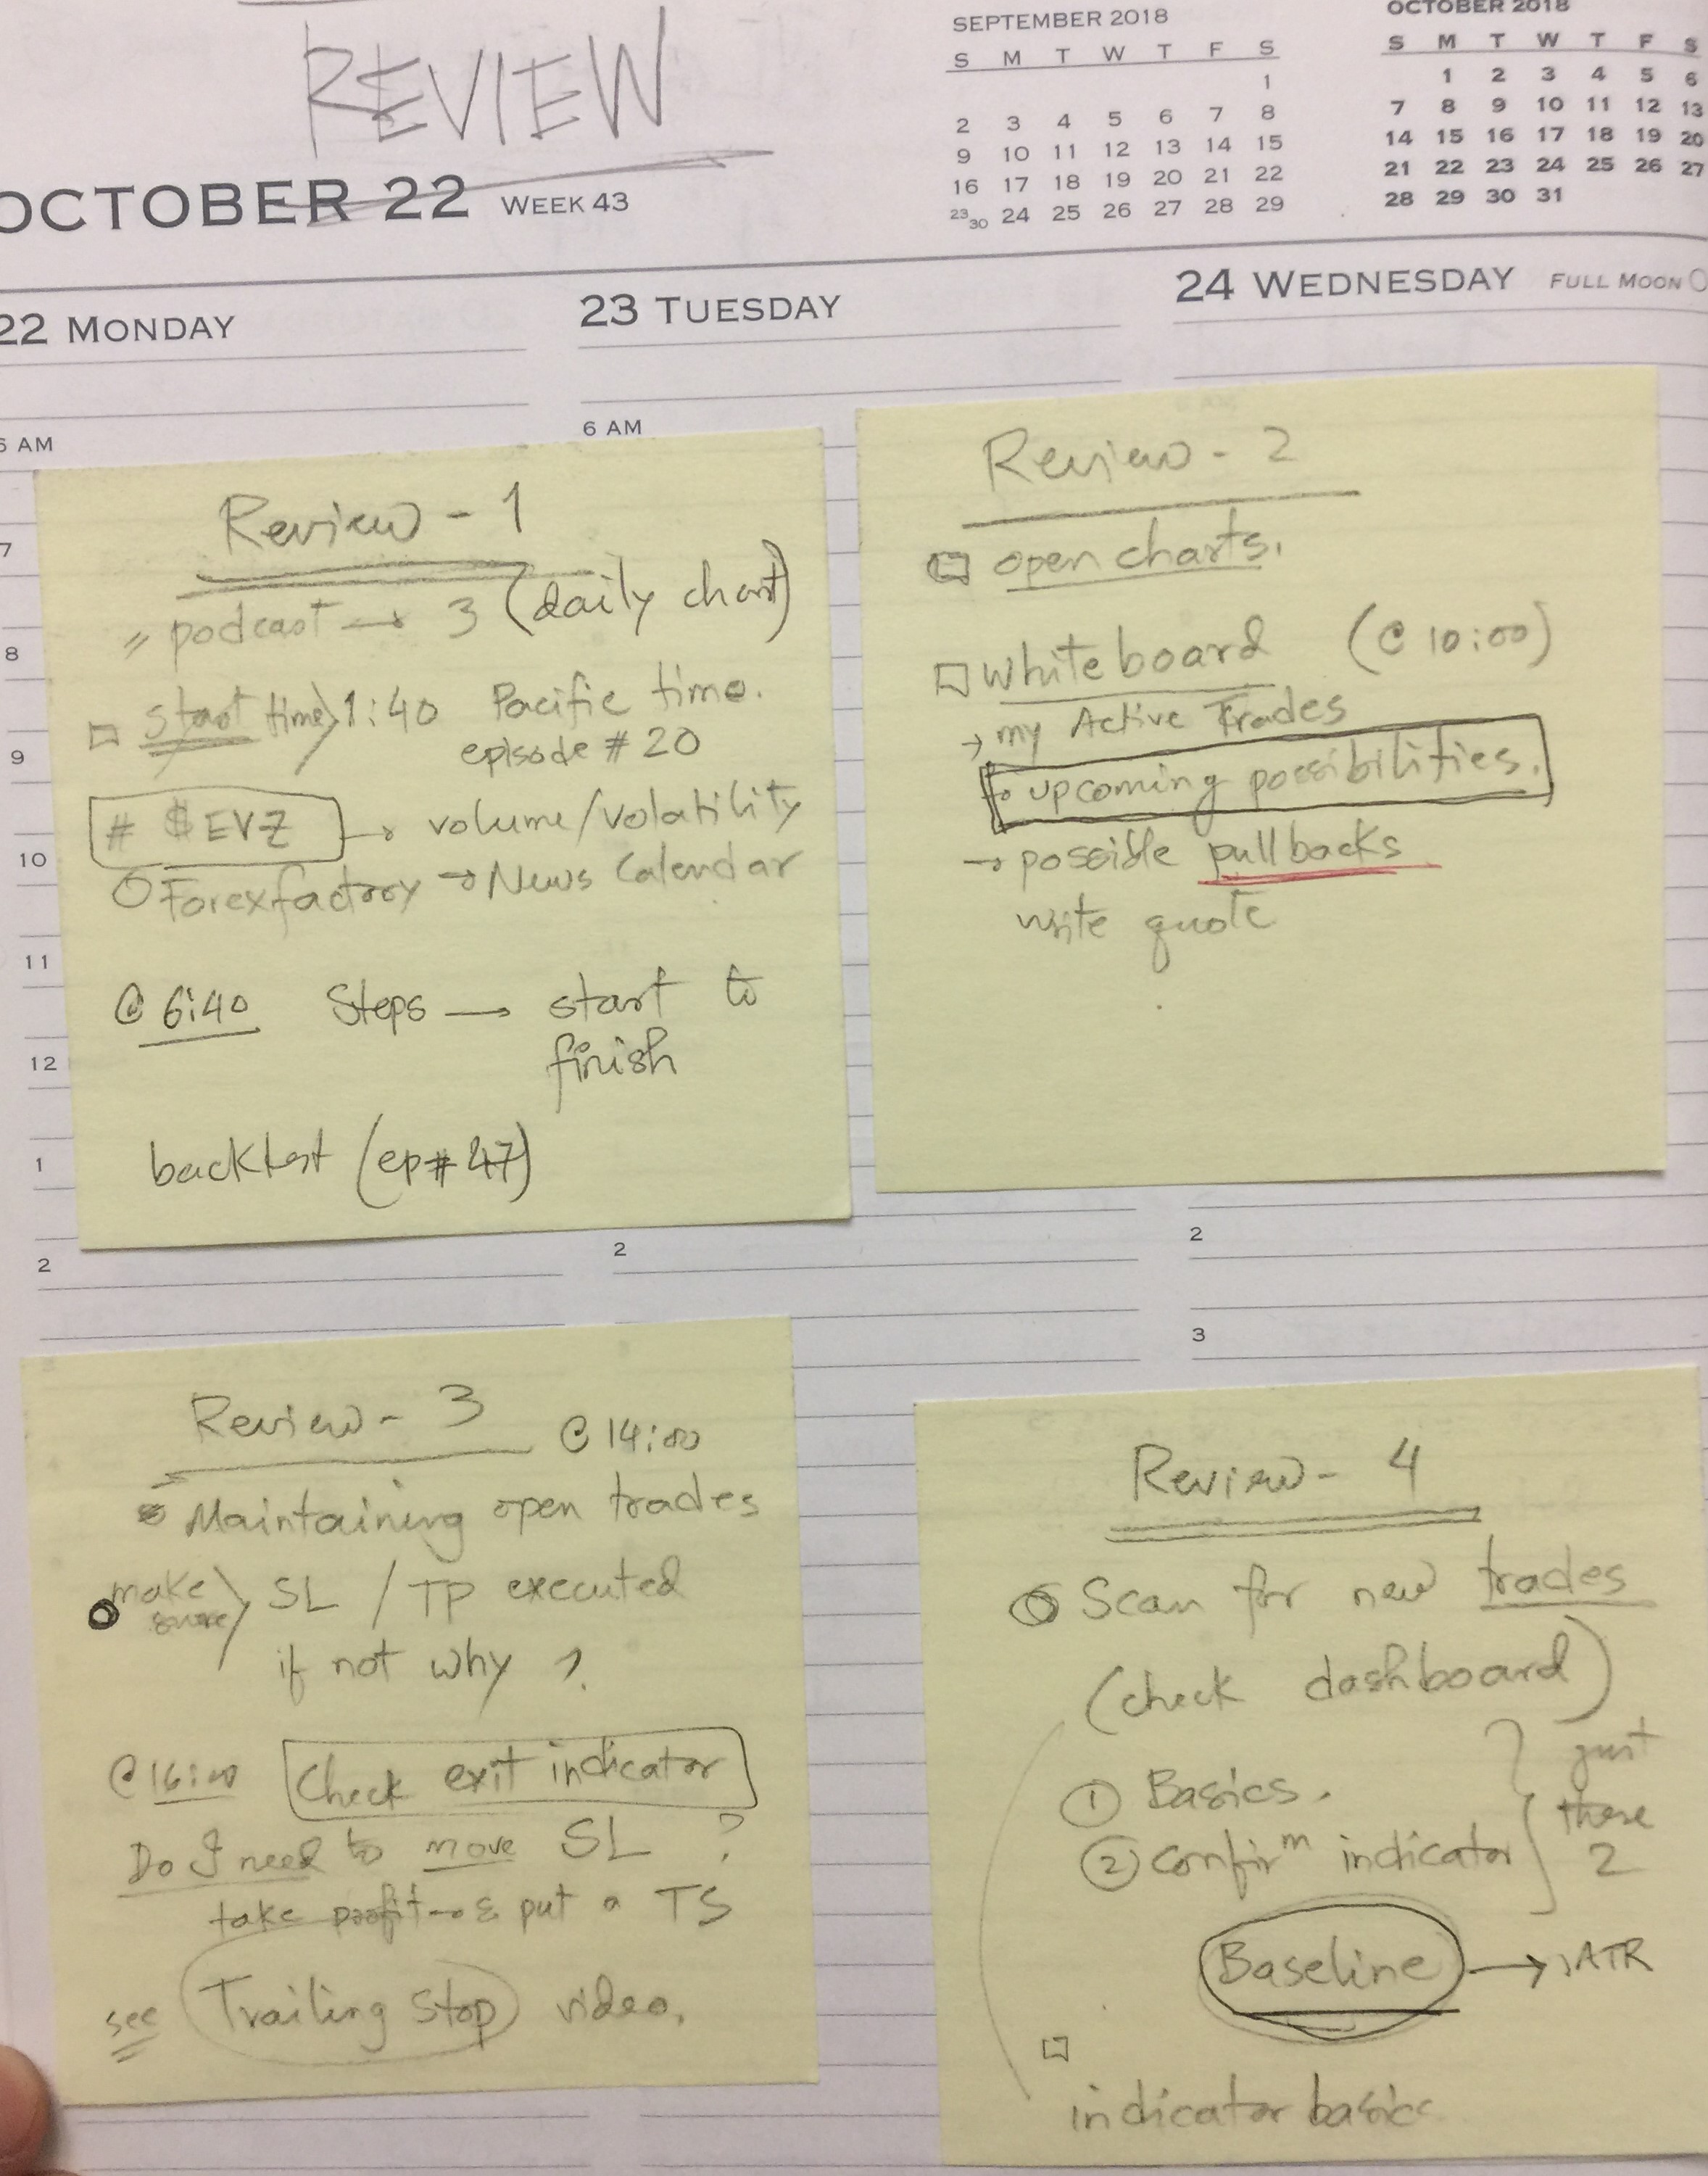 REVIEW
OCTOBER 22 WEEK 43
SEPTEMBER 2018
S M T W T F S
1
2 3 4 5 6 7 8
9 10 11 12 13 14 15
16 17 18 19 20 21 22
23 30 24 25 26 27 28 29
OCTOBER 2018
S M T W T F S
1 2 3 4 5 6
7 8 9 10 11 12 13
14 15 16 17 18 19 20
21 22 23 24 25 26 27
28 29 30 31
22 MONDAY
23 TUESDAY
24 WEDNESDAY FULL MOON
6 AM
6 AM
7
8
9
10
11
12
1
2
2
2
3
Review - 1
podcast → 3 (daily chart)
start time) 1:40 Pacific time.
episode # 20
# $EVZ → volume/volatility
Forexfactory → News Calendar
@ 6:40 Steps → start to
finish
backtest (ep# 47)
Review - 2
open charts.
Whiteboard (@ 10:00)
→ my Active Trades
→ upcoming possibilities.
→ possible pullbacks
write quote
Review - 3 @ 14:00
Maintaining open trades
make sure) SL / TP executed
if not why ?
@ 16:00 Check exit indicator
Do I need to move SL ?
take profit → & put a TS
see Trailing Stop video.
Review - 4
Scan for new trades
(check dashboard)
① Basics.
② confirm indicator
just
these
2
Baseline → ATR
indicator basics